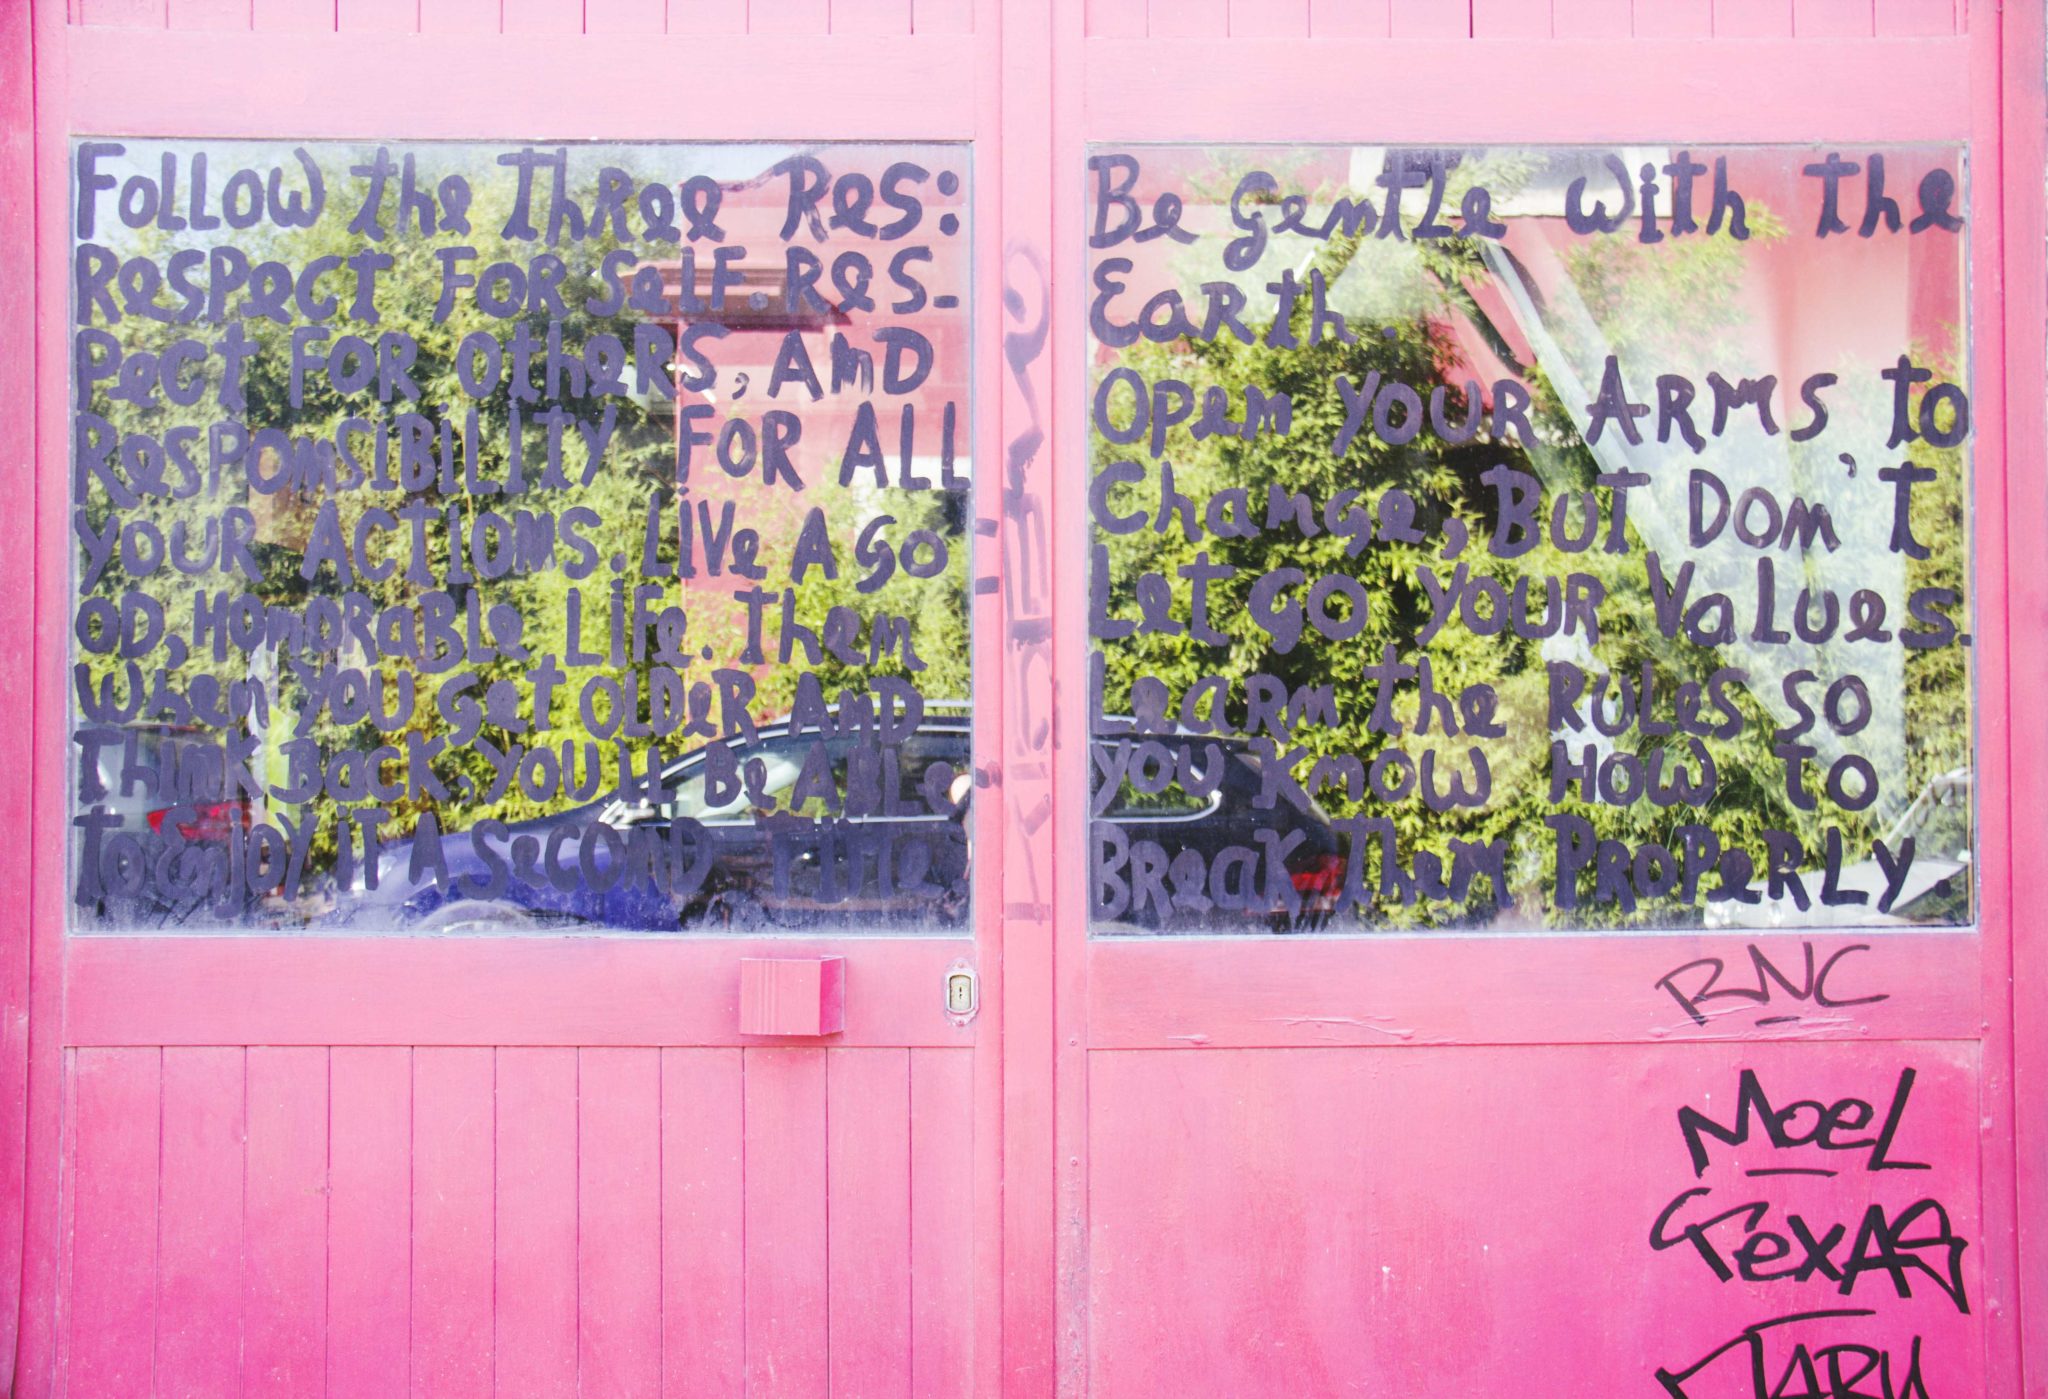 Follow the Three Res:
Respect for self. Res-
pect for others, and
Responsibility for all
your actions. Live a go
od, honorable life. Then
when you get older and
think back, you'll be able
to enjoy it a second time.
Be gentle with the
Earth.
Open your arms to
change, but don't
let go your values.
Learn the rules so
you know how to
break them properly.
RNC
MOEL
TEXAS